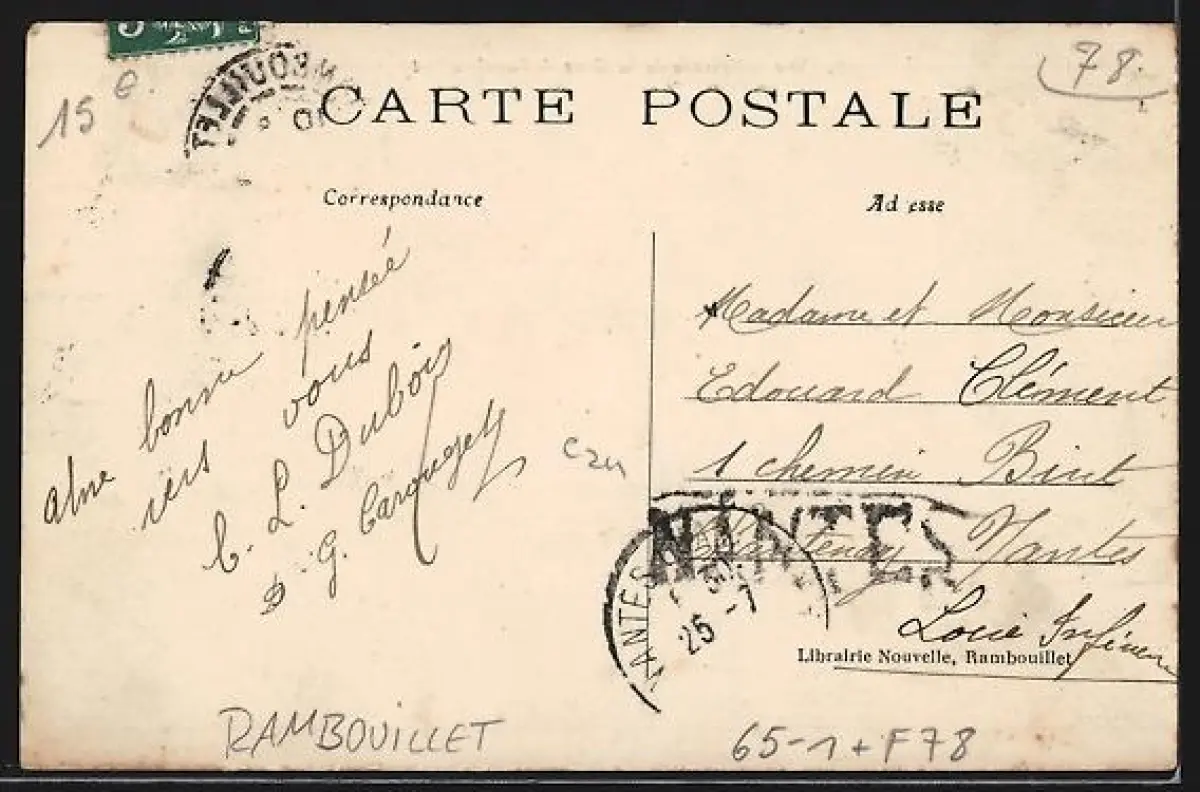 15 e.
78.
CARTE POSTALE
Correspondance
Ad esse
bonne pensée
vers vous
L. Dubois
G. Carouget
Czu
Madame et Monsieur
Edouard Clément
1 chemin Bint
Chantenay Nantes
Loire Inférieure
NANTES
NANTES
25 -7
Librairie Nouvelle, Rambouillet
RAMBOUILLET
65-1+F78